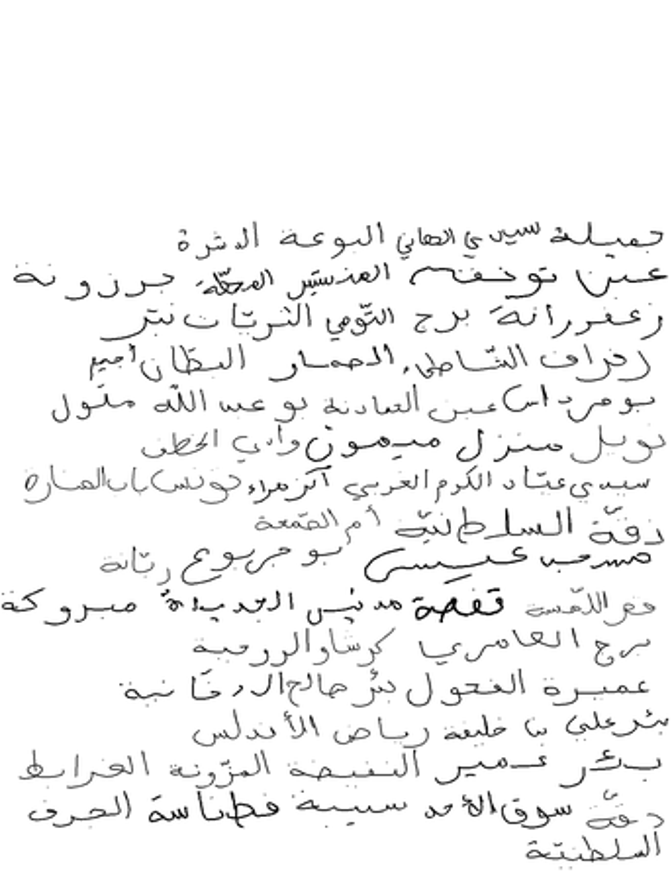 جميلة سيدي الهاني البوعة الدشرة
عين توفقة المنستير المحلة جرزونة
زعفرانة برج التومي الثريّات نبّر
زفراف الشاطئ الحمار البطّان أميم
بومرداس عين التمادنة بو عبد الله ملول
نوبل منزل ميمون وادي الخطف
سيدي عيّاد الكرم الغربي أكزمراء تونس باب المنارة
دقّة السلطانيّة أم القمعة
عيسى بو جربوع رتانة
قصر اللمسة قفصة مدنيس الجديدة مبروكة
برج العامري كرشاو الرومية
عميرة الفحول بئر صالح الدخانية
بئر علي بن خليفة رياض الأندلس
بئر عمير النفيضة المزّونة الغرابط
دقّة سوق الأحد سبيبة فطناسة الجرف
السلطنيّة